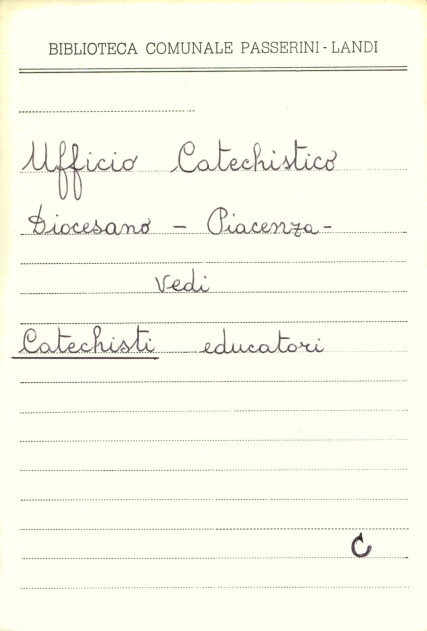 BIBLIOTECA COMUNALE PASSERINI-LANDI
Ufficio Catechistico
Diocesano - Piacenza -
Vedi
Catechisti educatori
C